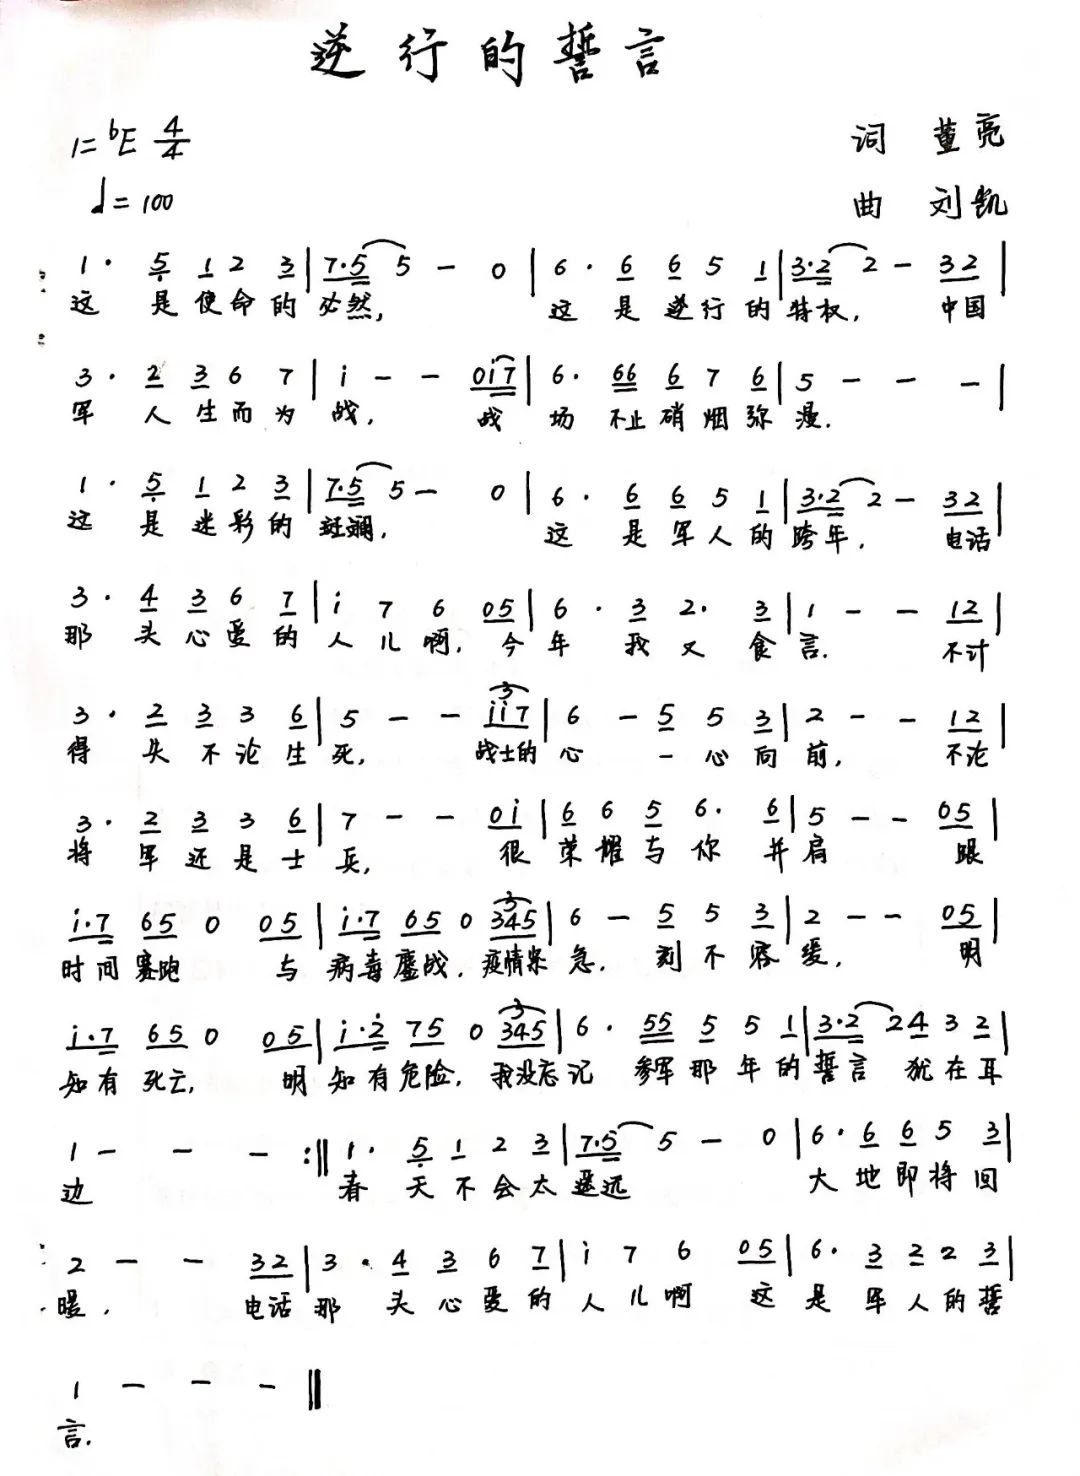 逆行的誓言
1=♭E 4/4 词 董亮
♩=100 曲 刘凯
1· 5 1 2 3 | 7·5 5 - 0 | 6· 6 6 5 1 | 3·2 2 - 32 |
这 是使命的必然, 这是逆行的特权, 中国
3· 2 3 6 7 | i - - 0i7 | 6· 66 6 7 6 | 5 - - - |
军人生而为战, 战场不止硝烟弥漫.
1· 5 1 2 3 | 7·5 5 - 0 | 6· 6 6 5 1 | 3·2 2 - 32 |
这是迷彩的斑斓, 这是军人的跨年, 电话
3· 4 3 6 7 | i 7 6 05 | 6· 3 2· 3 | 1 - - 12 |
那头心爱的人儿啊, 今年我又食言. 不计
3· 2 3 3 6 | 5 - - ii7 | 6 - 5 5 3 | 2 - - 12 |
得失不论生死, 战士的心一心向前, 不论
3· 2 3 3 6 | 7 - - 0i | 6 6 5 6· 6 | 5 - - 05 |
将军还是士兵, 很荣耀与你并肩 跟
i·7 65 0 05 | i·7 65 0 345 | 6 - 5 5 3 | 2 - - 05 |
时间赛跑 与病毒鏖战, 疫情紧急, 刻不容缓, 明
i·7 65 0 05 | i·2 75 0 345 | 6· 55 5 5 1 | 3·2 24 3 2 |
知有死亡, 明知有危险, 我没忘记 参军那年的誓言 犹在耳
1 - - - :‖ 1· 5 1 2 3 | 7·5 5 - 0 | 6· 6 6 5 3 |
边 春天不会太遥远 大地即将回
2 - - 32 | 3· 4 3 6 7 | i 7 6 05 | 6· 3 2 2 3 |
暖, 电话那头心爱的人儿啊 这是军人的誓
1 - - - ‖
言.